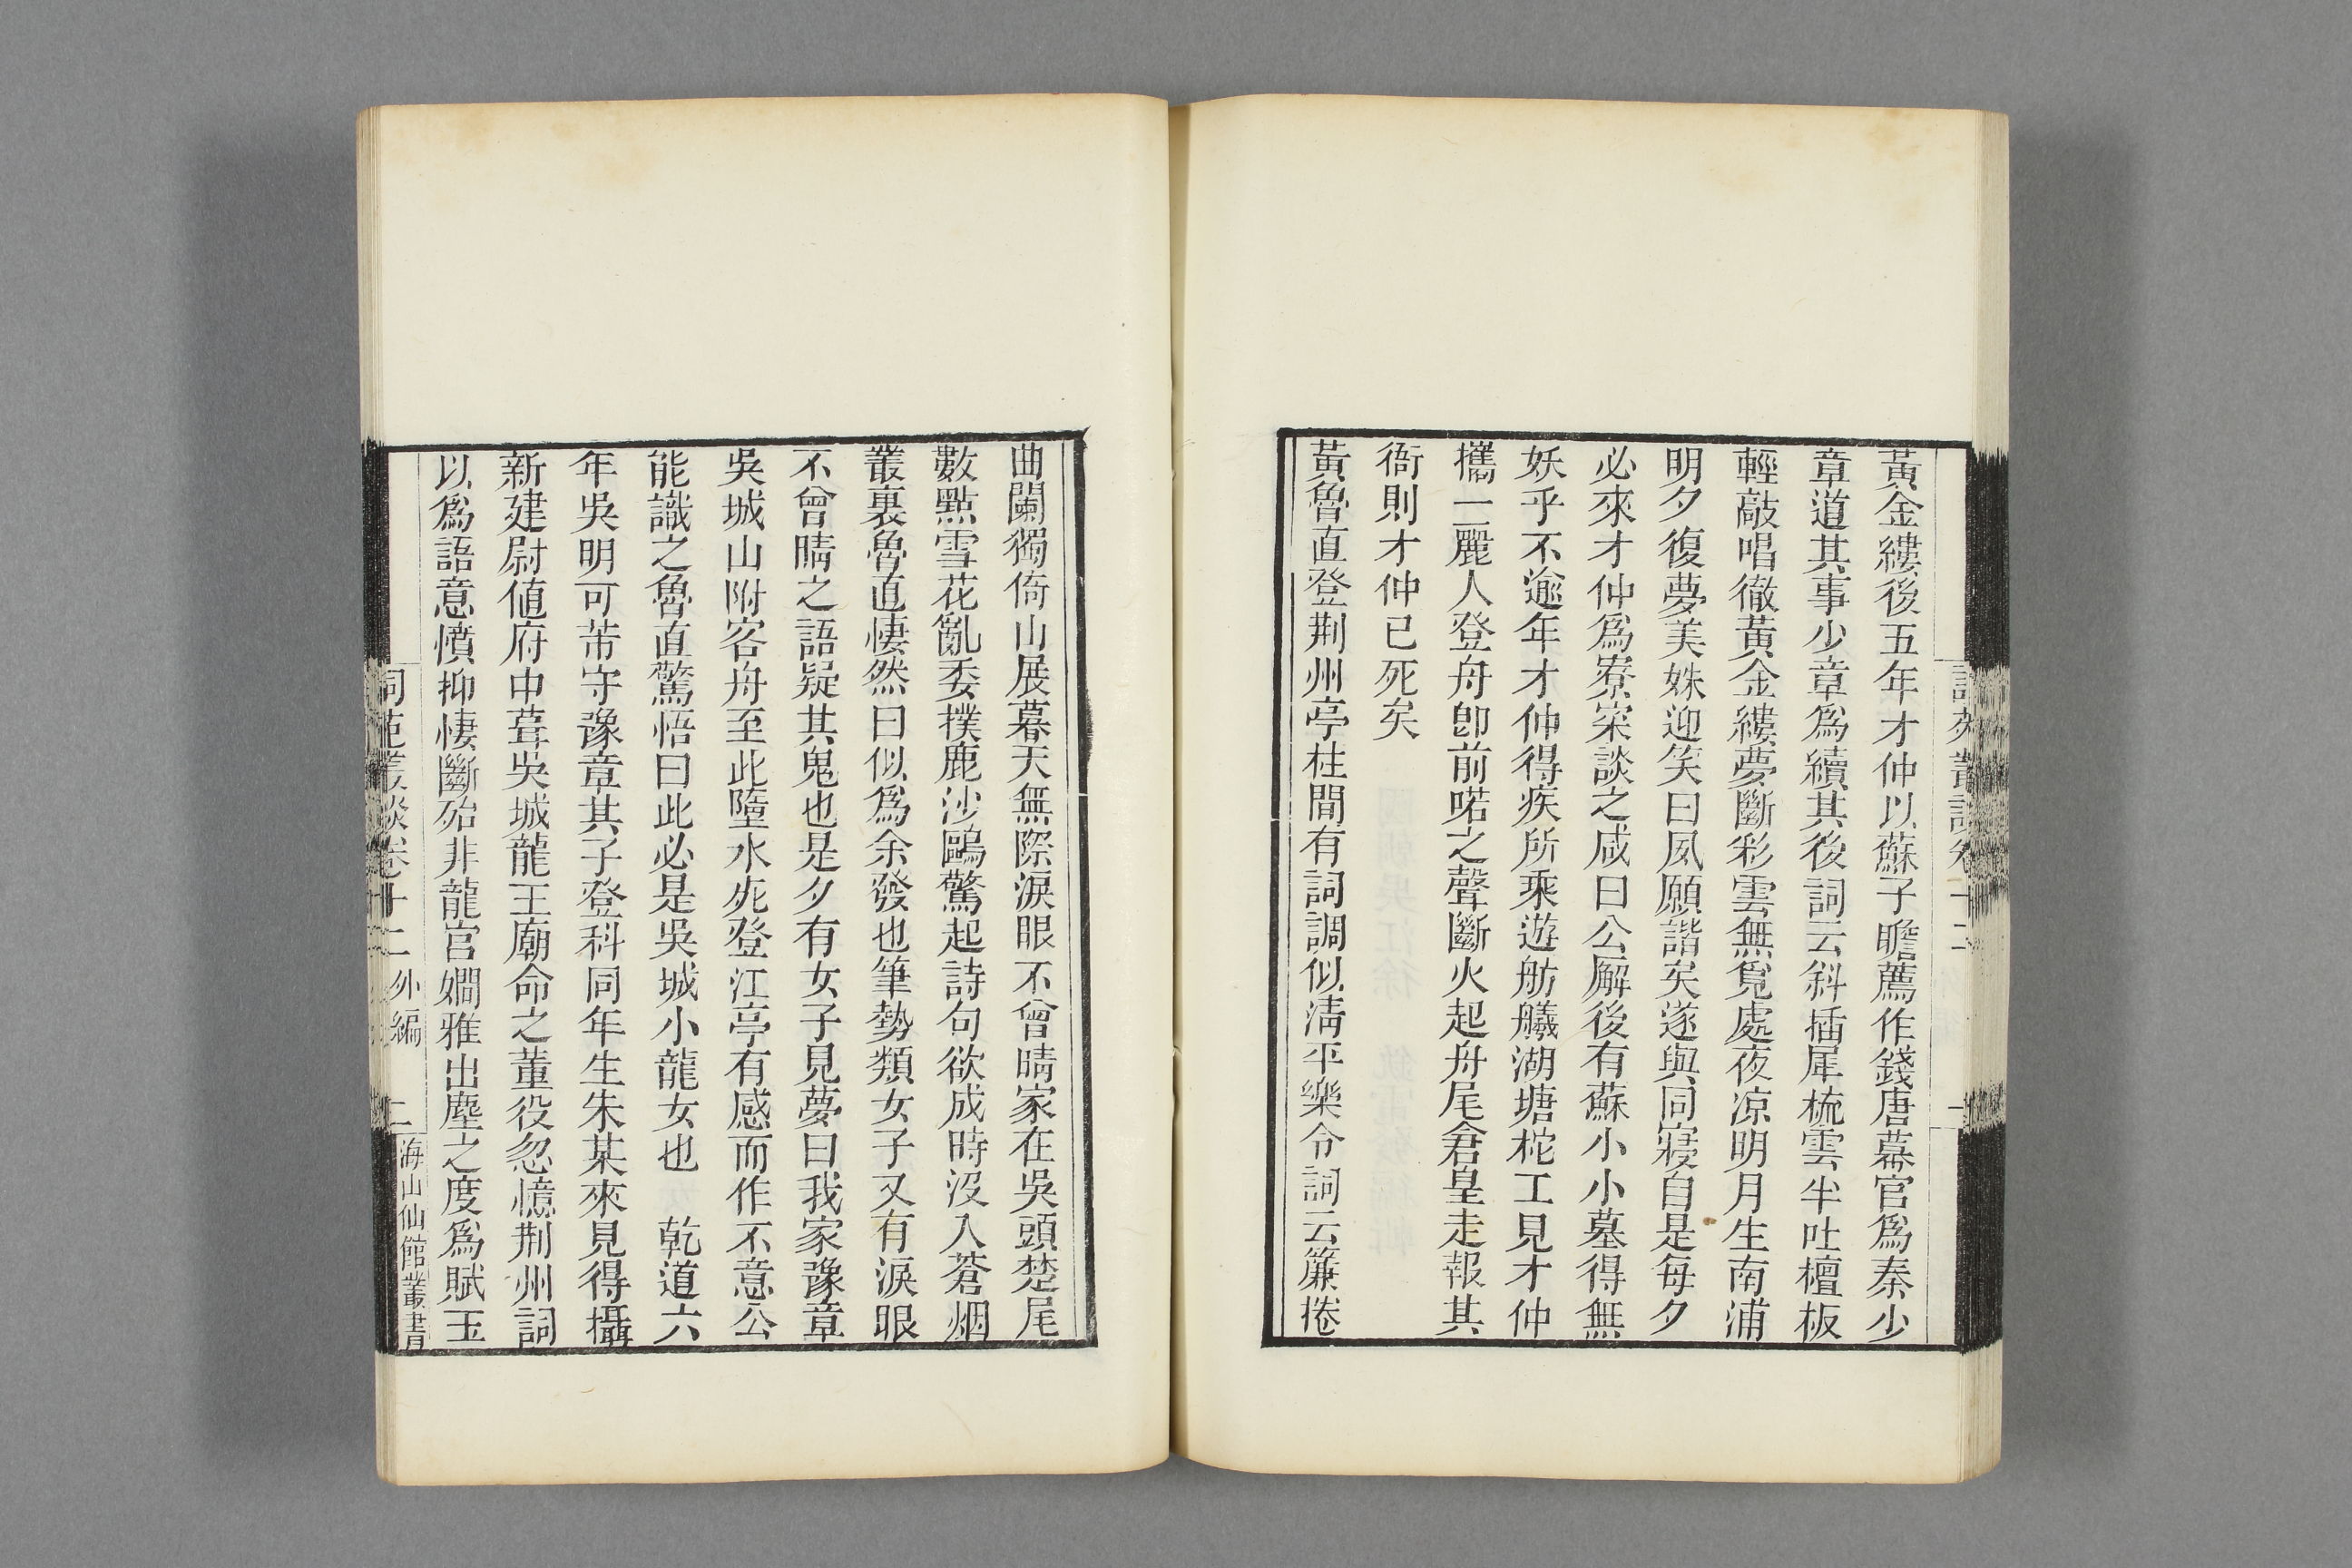 黃金縷後五年才仲以蘇子瞻薦作錢唐幕官爲秦少
章道其事少章爲續其後詞云斜插犀梳雲半吐檀板
輕敲唱徹黃金縷夢斷彩雲無覓處夜凉明月生南浦
明夕復夢美姝迎笑曰夙願諧矣遂與同寢自是每夕
必來才仲爲寮寀談之咸曰公廨後有蘇小小墓得無
妖乎不逾年才仲得疾所乘遊舫艤湖塘柁工見才仲
攜一麗人登舟卽前喏之聲斷火起舟尾倉皇走報其
衙則才仲已死矣
黃魯直登荆州亭柱間有詞調似淸平樂令詞云簾捲
曲闌獨倚山展暮天無際淚眼不曾晴家在吳頭楚尾
數點雪花亂委撲鹿沙鷗驚起詩句欲成時沒入蒼烟
叢裏魯直悽然曰似爲余發也筆勢類女子又有淚眼
不曾晴之語疑其鬼也是夕有女子見夢曰我家豫章
吳城山附客舟至此墮水死登江亭有感而作不意公
能識之魯直驚悟曰此必是吳城小龍女也 乾道六
年吳明可芾守豫章其子登科同年生朱某來見得攝
新建尉値府中葺吳城龍王廟命之董役忽憶荆州詞
以爲語意憤抑悽斷殆非龍宮嫺雅出塵之度爲賦玉
詞苑叢談卷十二 外編 二 海山仙館叢書